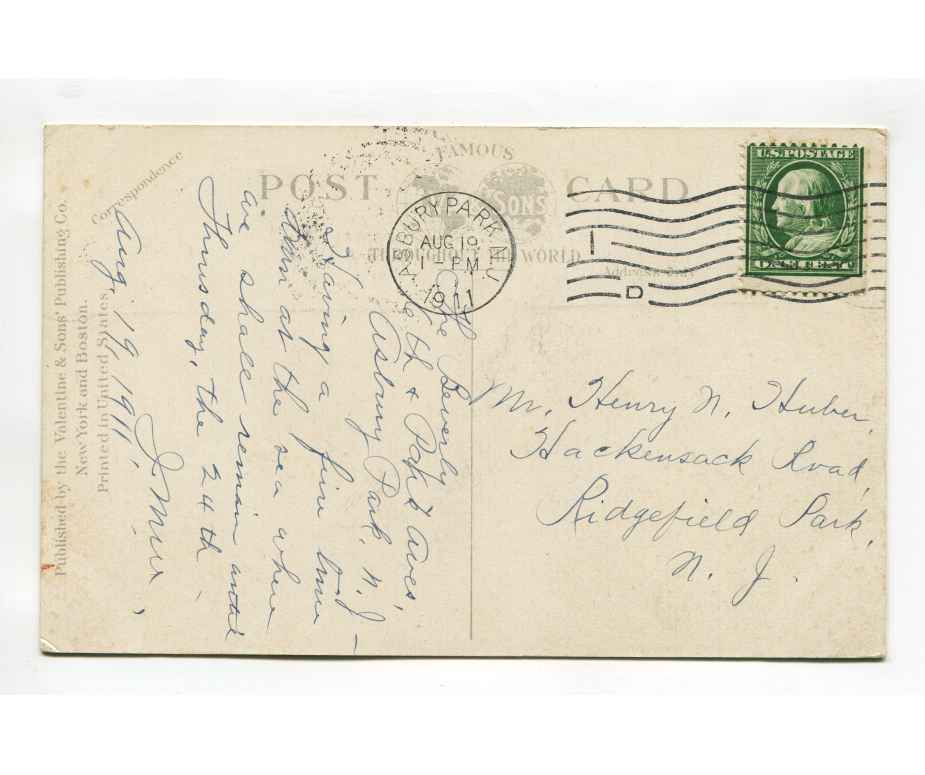 Published by the Valentine & Sons' Publishing Co.
New York and Boston.
Printed in United States
Correspondence
FAMOUS
POST CARD
SONS
THROUGHOUT THE WORLD
Address Only
ASBURY PARK N.J.
AUG 19
1 - PM
1911
1
D
U.S. POSTAGE
ONE CENT
The Beverly
6th & Park Aves,
Asbury Park, N. J -
Having a fine time
down at the sea where
we shall remain until
Thursday, the 24th
Aug. 19, 1911,
Mr. Henry N. Huber,
Hackensack Road,
Ridgefield Park,
N. J.